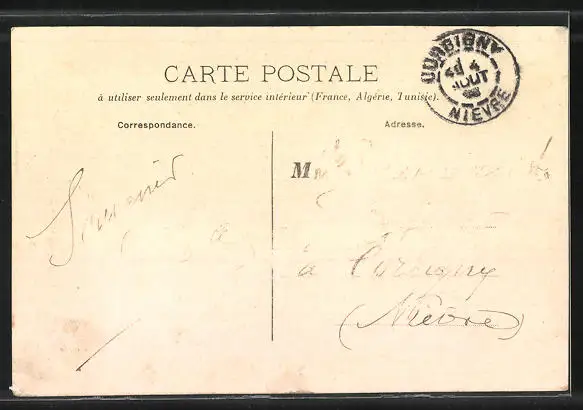 CARTE POSTALE
à utiliser seulement dans le service intérieur (France, Algérie, Tunisie).
Correspondance.
Adresse.
CORBIGNY
4
AOUT
NIEVRE
M
Souvenir
à Corbigny
(Nièvre)